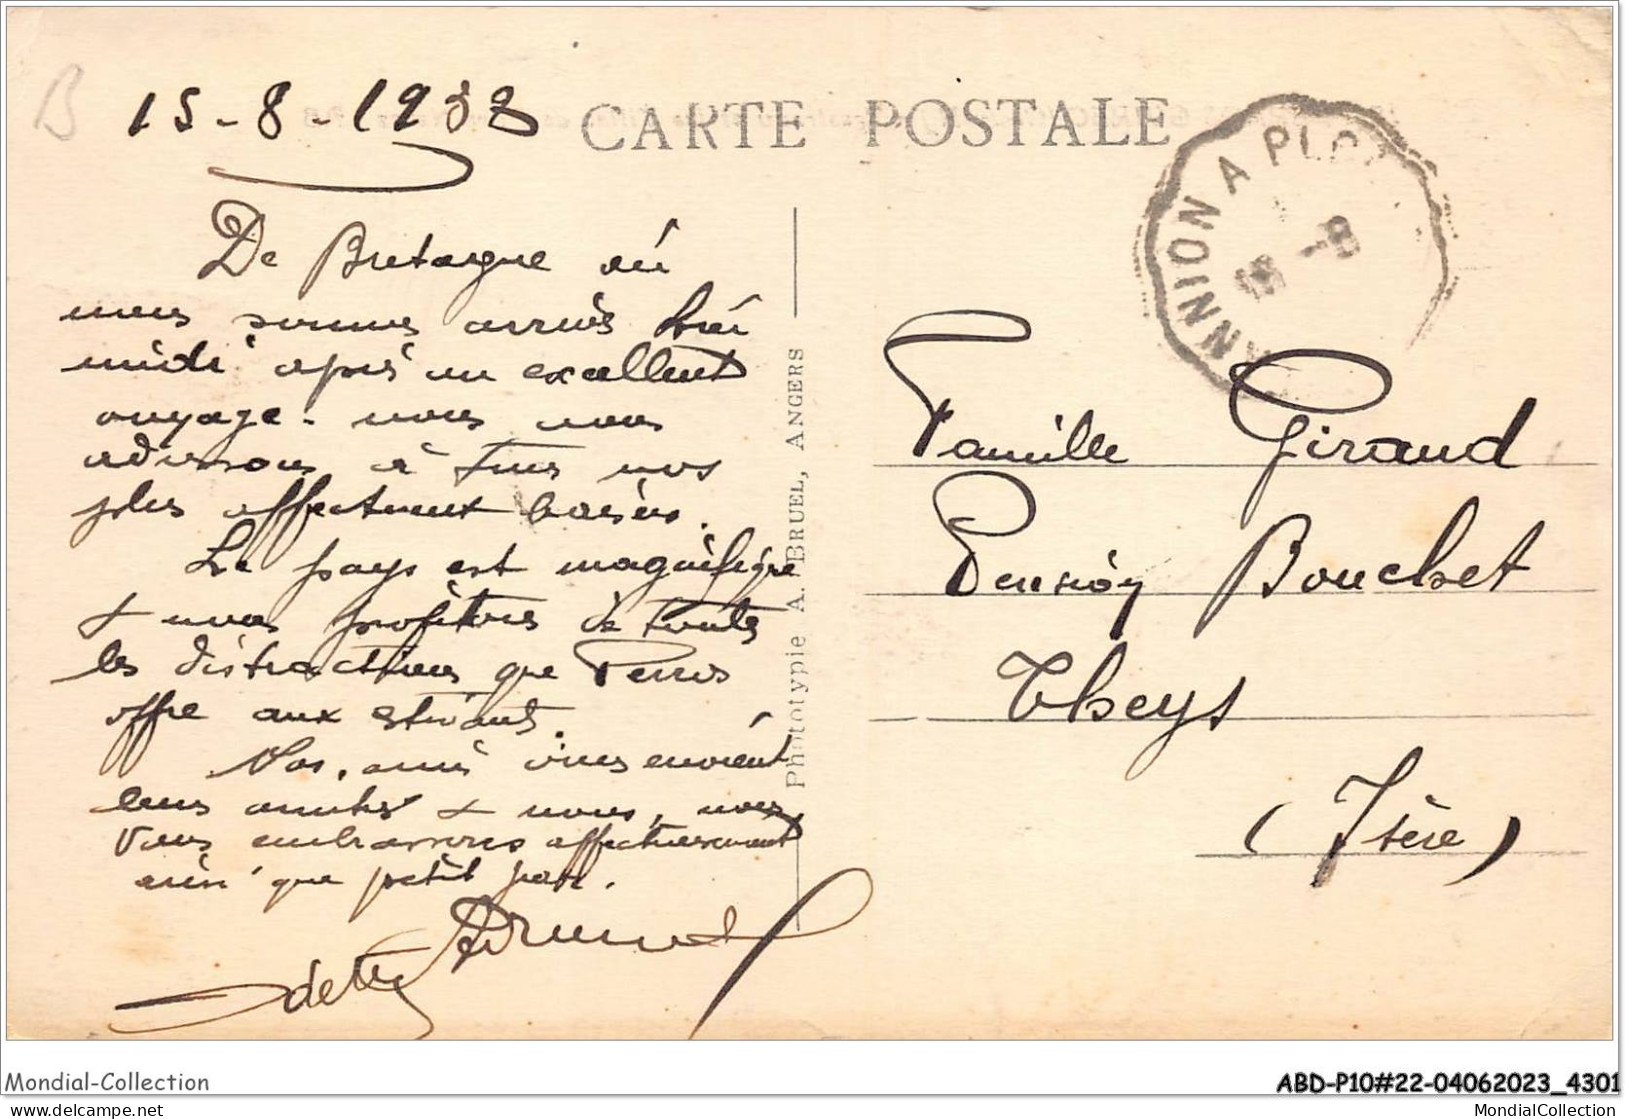 B
15-8-1938
CARTE POSTALE
LANNION A PLO
De Bretagne où
nous sommes arrivés hier
midi après un excellent
voyage - nous vous
adressons à tous nos
plus affectueux baisers.
Le pays est magnifique
+ nous profitons de toutes
les distractions que Perros
offre aux estivants.
Nos amis vous envoient
leurs amitiés + nous, nous
vous embrassons affectueusement
ainsi que petit
Odette
Phototypie A. BRUEL, ANGERS
Famille Giraud
Pension Bouchet
Theys
(Isère)
Mondial-Collection
ABD-P10#22-04062023_4301
www.delcampe.net
MondialCollection